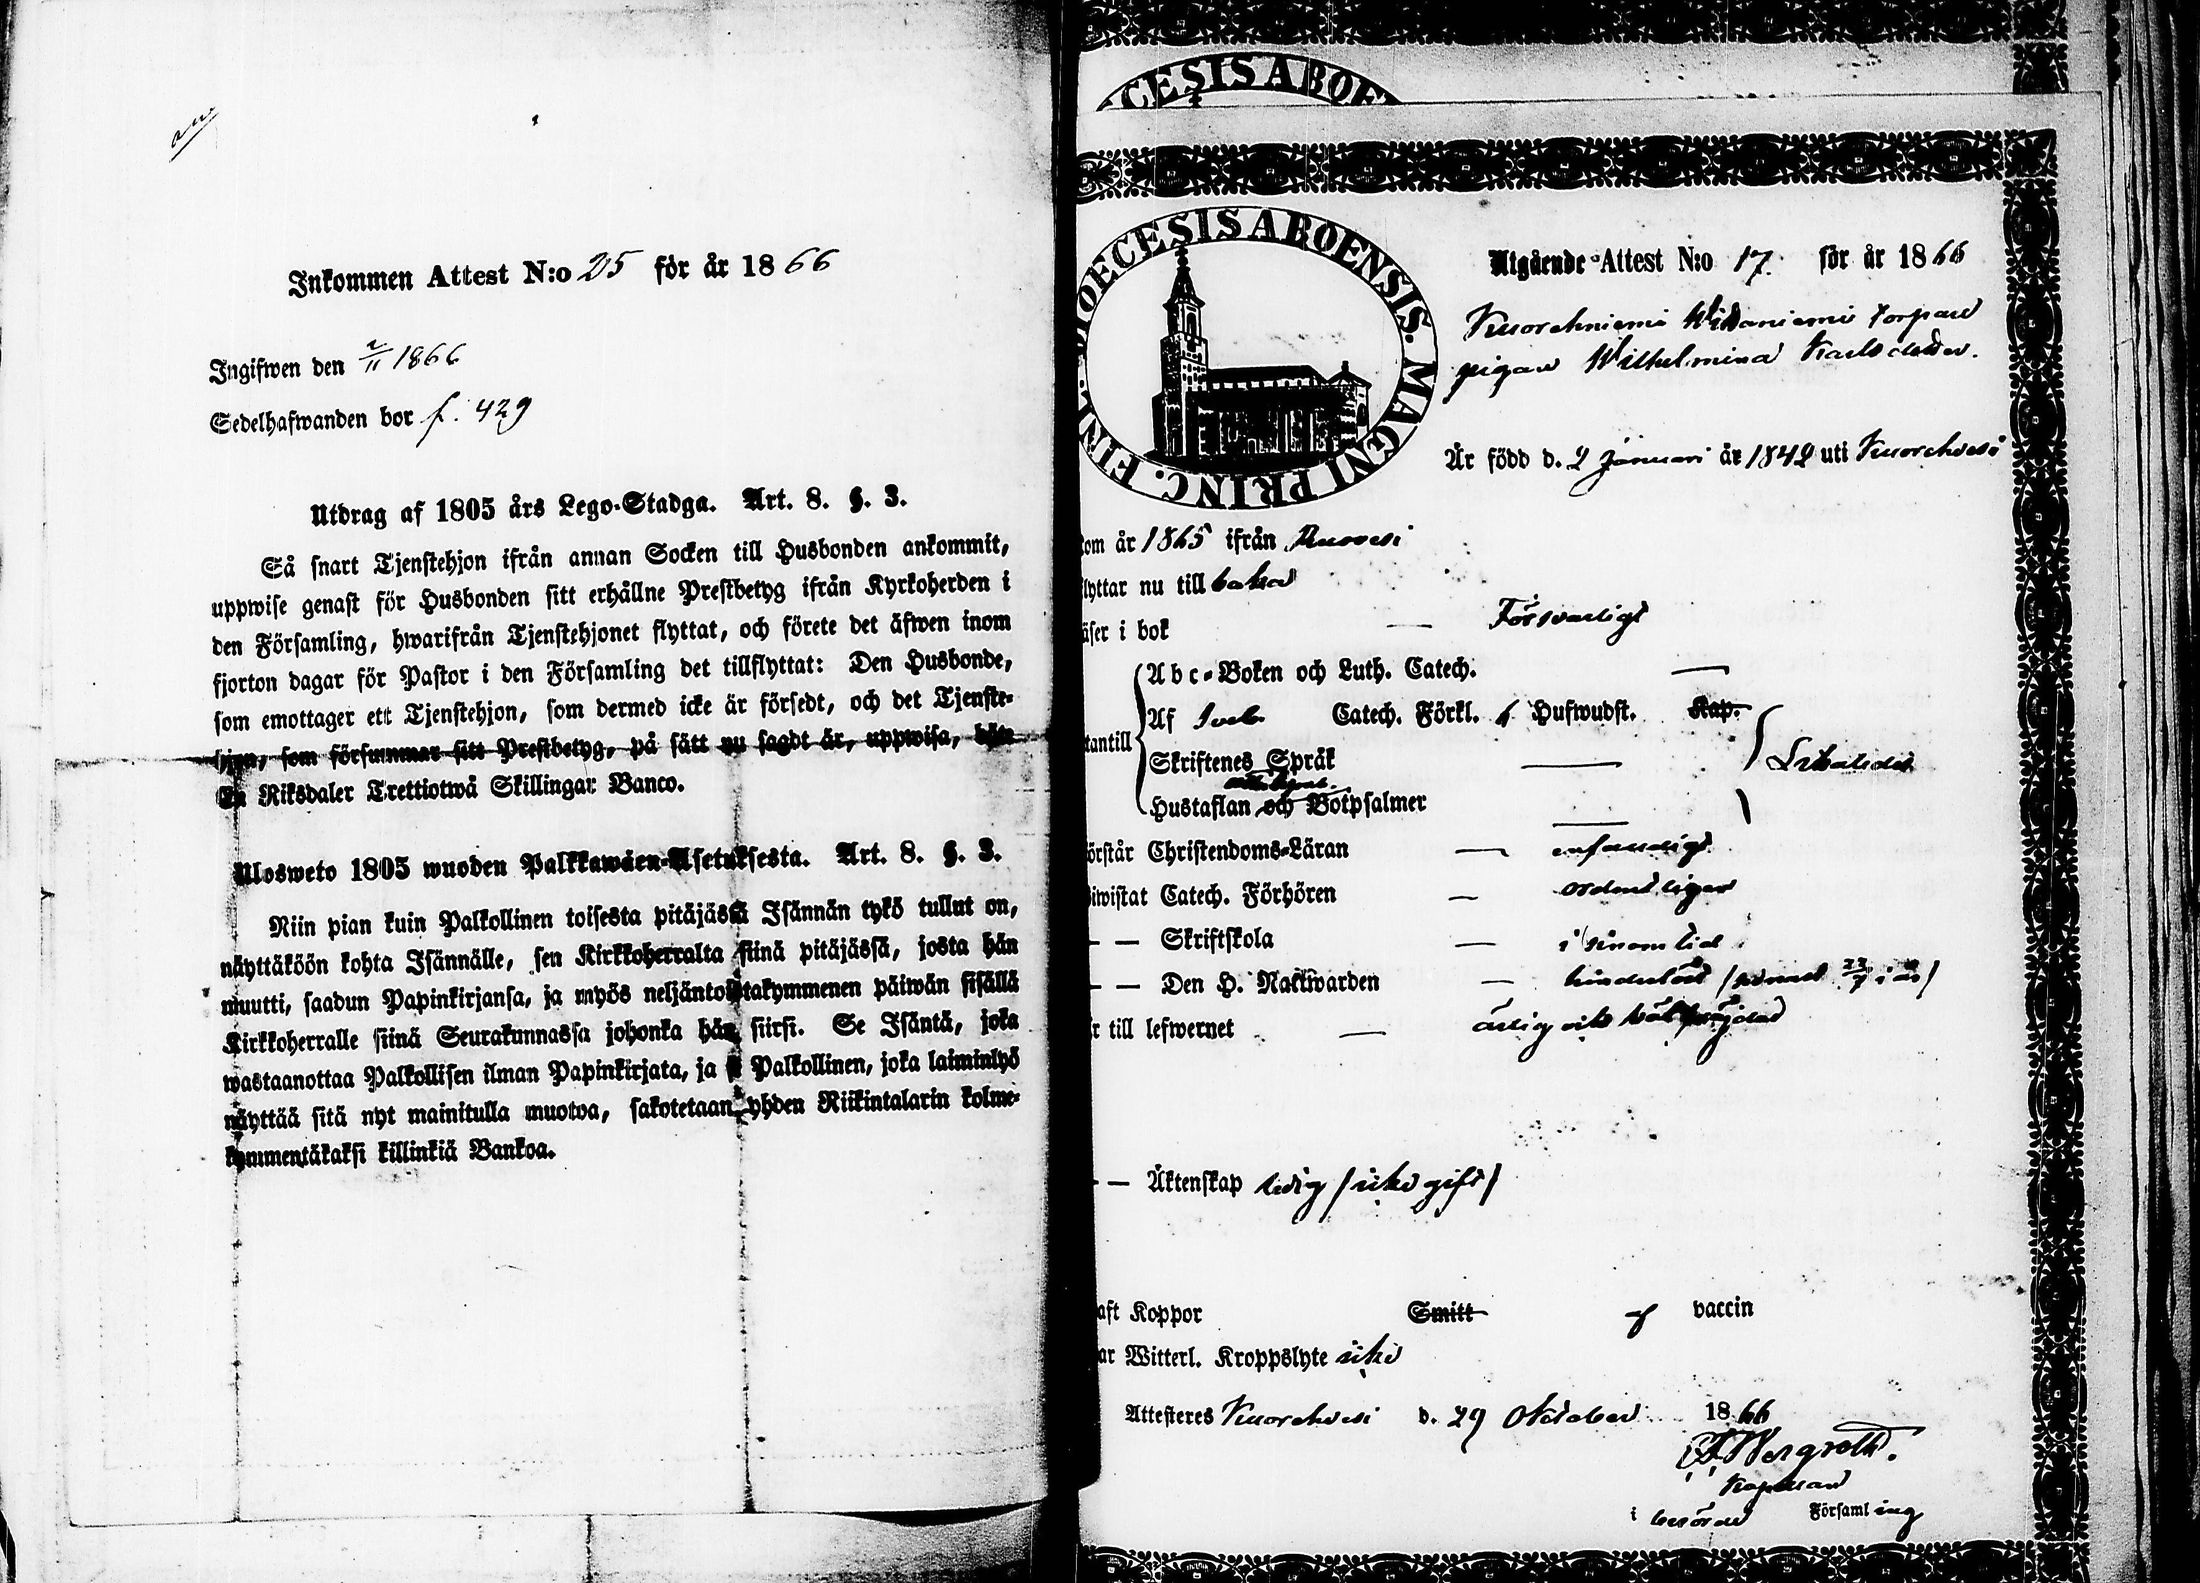 Inkommen Attest N:o 25 för år 1866
Ingifwen den 2/11 1866
Sedelhafwanden bor f. 429
Utdrag af 1805 års Lego-Stadga. Art. 8. §. 3.
Så snart Tjenstehjon ifrån annan Socken till Husbonden ankommit,
uppwise genast för Husbonden sitt erhållne Prestbetyg ifrån Kyrkoherden i
den Församling, hwarifrån Tjenstehjonet flyttat, och förete det äfwen inom
fjorton dagar för Pastor i den Församling det tillflyttat: Den Husbonde,
som emottager ett Tjenstehjon, som dermed icke är försedt, och det Tjenste-
hjon, som försummar sitt Prestbetyg, på sätt nu sagdt är, uppwisa, böte
En Riksdaler Trettiotwå Skillingar Banco.
Ulosweto 1805 wuoden Palkkawäen-Asetuksesta. Art. 8. §. 3.
Niin pian kuin Palkollinen toisesta pitäjästä Isännän tykö tullut on,
näyttäköön kohta Isännälle, sen Kirkkoherralta siinä pitäjässä, josta hän
muutti, saadun Papinkirjansa, ja myös neljäntoistakymmenen päiwän sisällä
Kirkkoherralle siinä Seurakunnassa johonka hän siirsi. Se Isäntä, joka
wastaanottaa Palkollisen ilman Papinkirjata, ja se Palkollinen, joka laiminlyö
näyttää sitä nyt mainitulla muotoa, sakotetaan yhden Riikintalarin kolme-
kymmentäkaksi killinkiä Bankoa.
ECESIS ABOE
DIOECESIS ABOENSIS. MAGNI PRINC. FINL.
Utgående Attest N:o 17. för år 1866
Kuorehniemi torpare
pigan Wilhelmina Karlsdotter.
Är född d. 2 Januari år 1842 uti Kuorehvesi
kom år 1865 ifrån Ruovesi
flyttar nu till baka
läser i bok — Försvarligt
Abc-Boken och Luth. Catech. —
Af Catech. Förkl. 6 Hufwudst. Kap.
utantill
Skriftenes Språk —
Hustaflan och Botpsalmer —
örstår Christendoms-Läran —
iwistat Catech. Förhören — ordentligen
— — Skriftskola — i sinom tid
— — Den H. Nattwarden — hinderlöst (senast 22/7 i år)
r till lefwernet — ärlig och väl frejdad
— — Äktenskap ledig (icke gift)
aft Koppor Smitt af vaccin
ar Witterl. Kroppslyte icke
Attesteres Kuorehvesi d. 29 Oktober 1866
Bergroth.
Kapellan
i berörde Församling